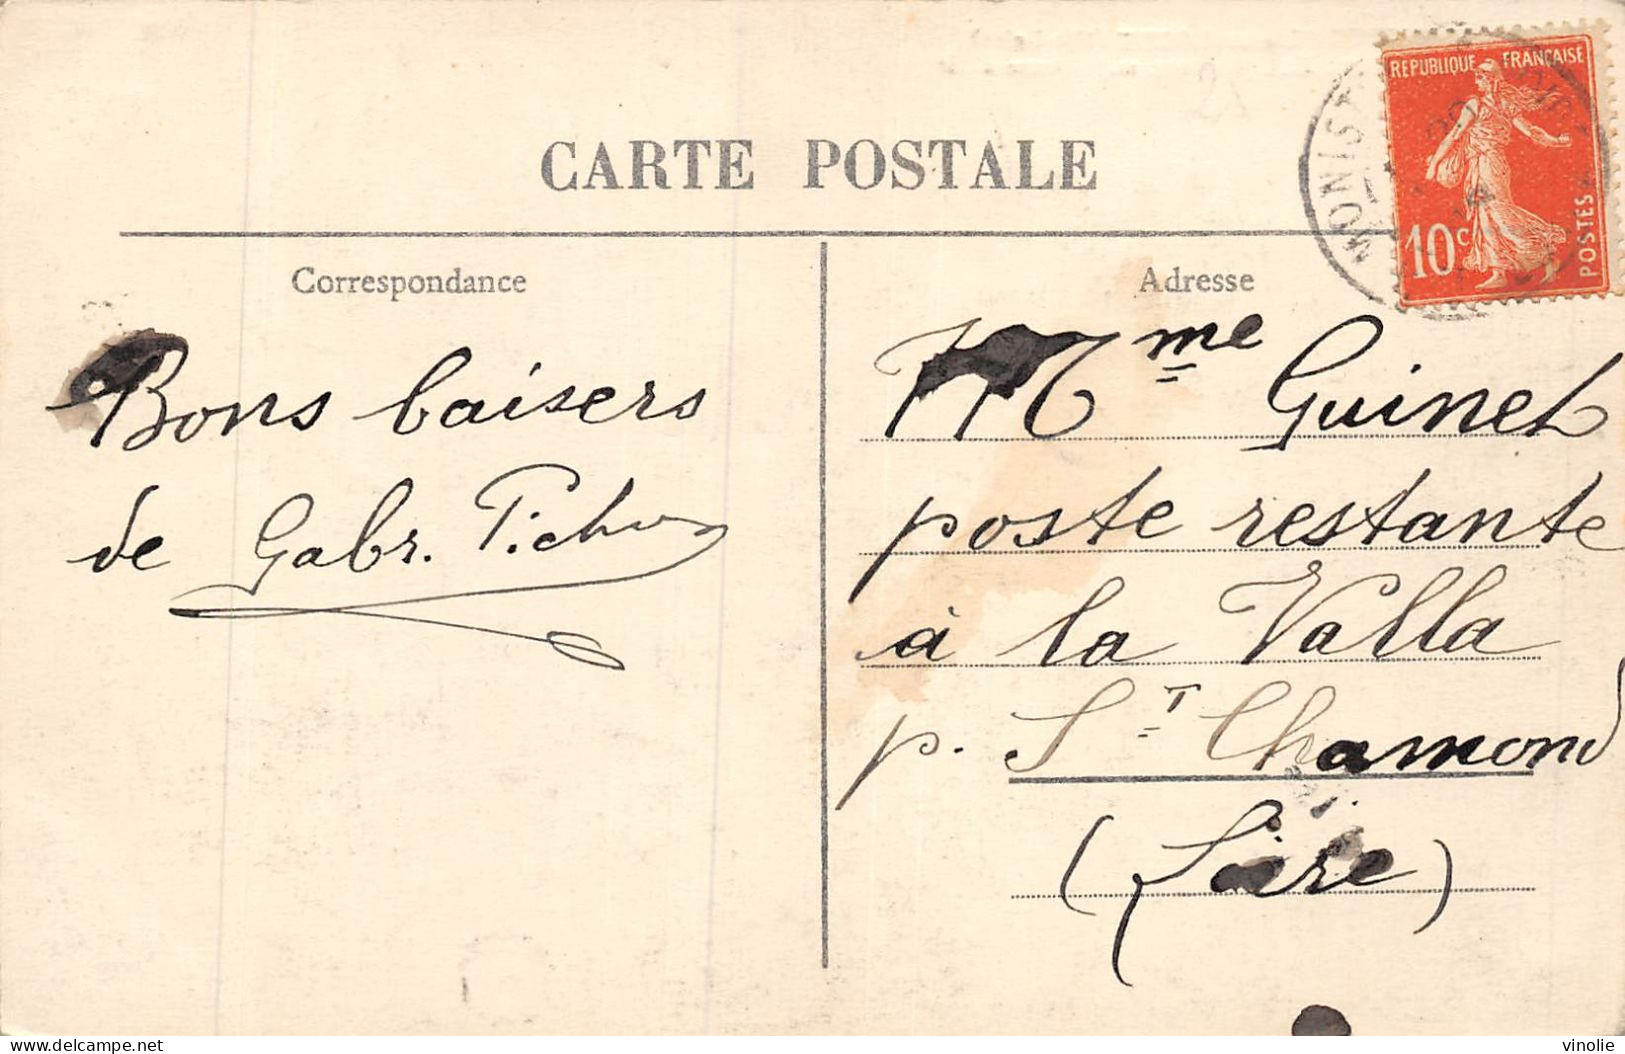 CARTE POSTALE
REPUBLIQUE FRANÇAISE
10c
POSTES
MONIST
Correspondance
Adresse
Bons baisers
de Gabr.
Mme Guinet
poste restante
à la Valla
p. St Chamond
(Loire)
delcampe.net
vinolie